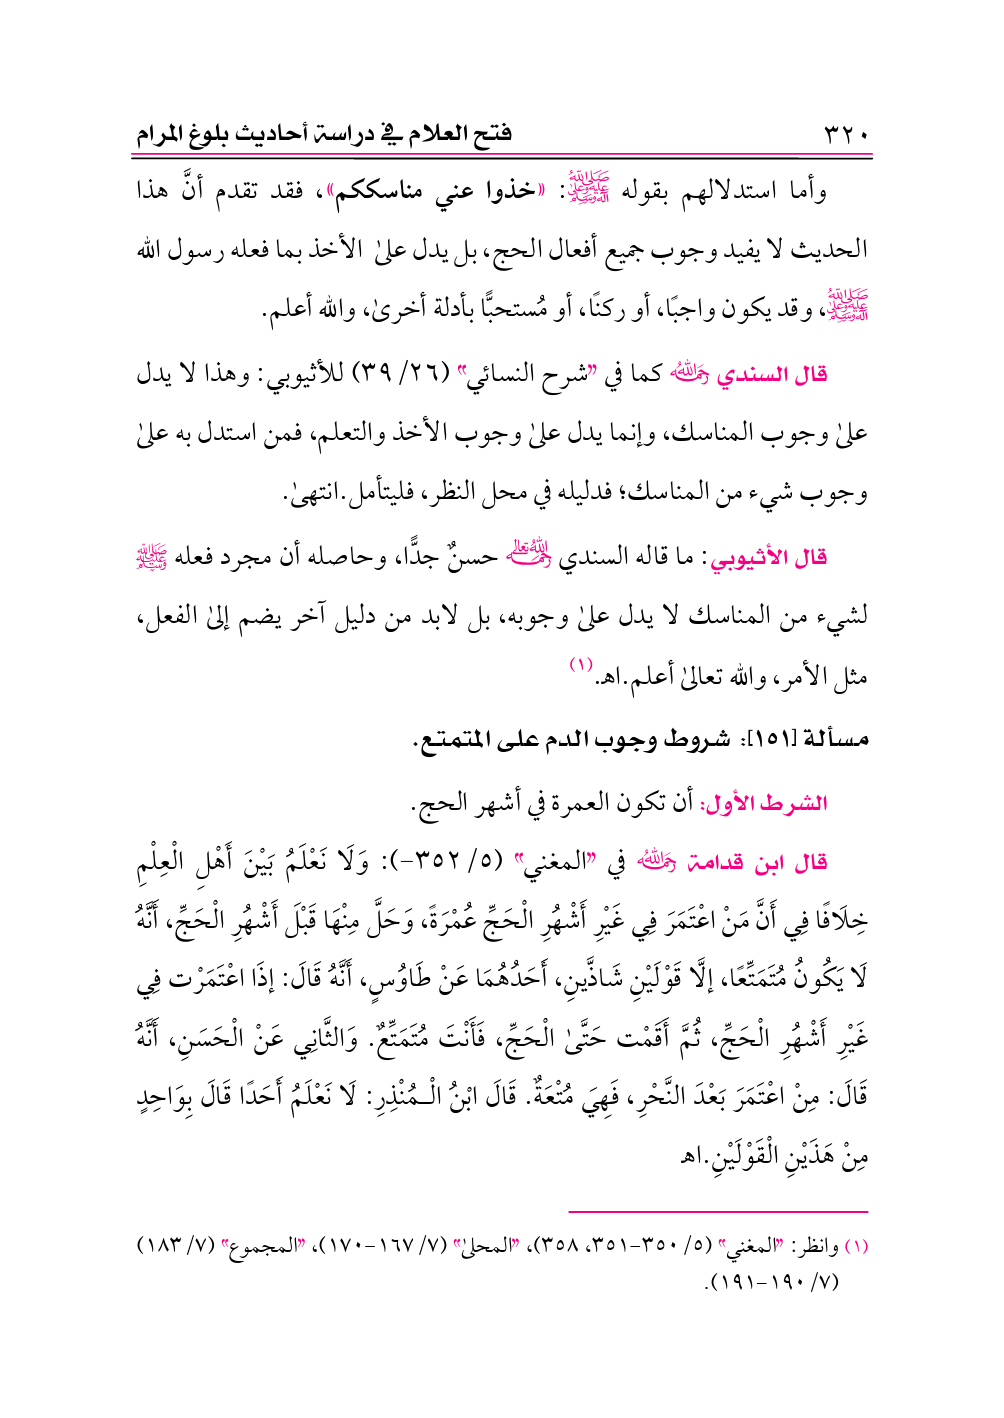 ٣٢٠ فتح العلام في دراسة أحاديث بلوغ المرام
وأما استدلالهم بقوله ﷺ: «خذوا عني مناسككم»، فقد تقدم أنَّ هذا
الحديث لا يفيد وجوب جميع أفعال الحج، بل يدل علىٰ الأخذ بما فعله رسول الله
ﷺ، وقد يكون واجبًا، أو ركنًا، أو مُستحبًّا بأدلة أخرىٰ، والله أعلم.
قال السندي رحمه الله كما في "شرح النسائي" (٢٦/ ٣٩) للأثيوبي: وهذا لا يدل
علىٰ وجوب المناسك، وإنما يدل علىٰ وجوب الأخذ والتعلم، فمن استدل به علىٰ
وجوب شيء من المناسك؛ فدليله في محل النظر، فليتأمل.انتهىٰ.
قال الأثيوبي: ما قاله السندي رحمه الله تعالى حسنٌ جدًّا، وحاصله أن مجرد فعله ﷺ
لشيء من المناسك لا يدل علىٰ وجوبه، بل لابد من دليل آخر يضم إلىٰ الفعل،
مثل الأمر، والله تعالىٰ أعلم.اهـ.(١)
مسألة [١٥١]: شروط وجوب الدم على المتمتع.
الشرط الأول: أن تكون العمرة في أشهر الحج.
قال ابن قدامة رحمه الله في "المغني" (٥/ ٣٥٢-): وَلَا نَعْلَمُ بَيْنَ أَهْلِ الْعِلْمِ
خِلَافًا فِي أَنَّ مَنْ اعْتَمَرَ فِي غَيْرِ أَشْهُرِ الْحَجِّ عُمْرَةً، وَحَلَّ مِنْهَا قَبْلَ أَشْهُرِ الْحَجِّ، أَنَّهُ
لَا يَكُونُ مُتَمَتِّعًا، إلَّا قَوْلَيْنِ شَاذَّيْنِ، أَحَدُهُمَا عَنْ طَاوُسٍ، أَنَّهُ قَالَ: إذَا اعْتَمَرْت فِي
غَيْرِ أَشْهُرِ الْحَجِّ، ثُمَّ أَقَمْت حَتَّىٰ الْحَجِّ، فَأَنْتَ مُتَمَتِّعٌ. وَالثَّانِي عَنْ الْحَسَنِ، أَنَّهُ
قَالَ: مِنْ اعْتَمَرَ بَعْدَ النَّحْرِ، فَهِيَ مُتْعَةٌ. قَالَ ابْنُ الْـمُنْذِرِ: لَا نَعْلَمُ أَحَدًا قَالَ بِوَاحِدٍ
مِنْ هَذَيْنِ الْقَوْلَيْنِ.اهـ
(١) وانظر: "المغني" (٥/ ٣٥٠-٣٥١، ٣٥٨)، "المحلىٰ" (٧/ ١٦٧-١٧٠)، "المجموع" (٧/ ١٨٣)
(٧/ ١٩٠-١٩١).